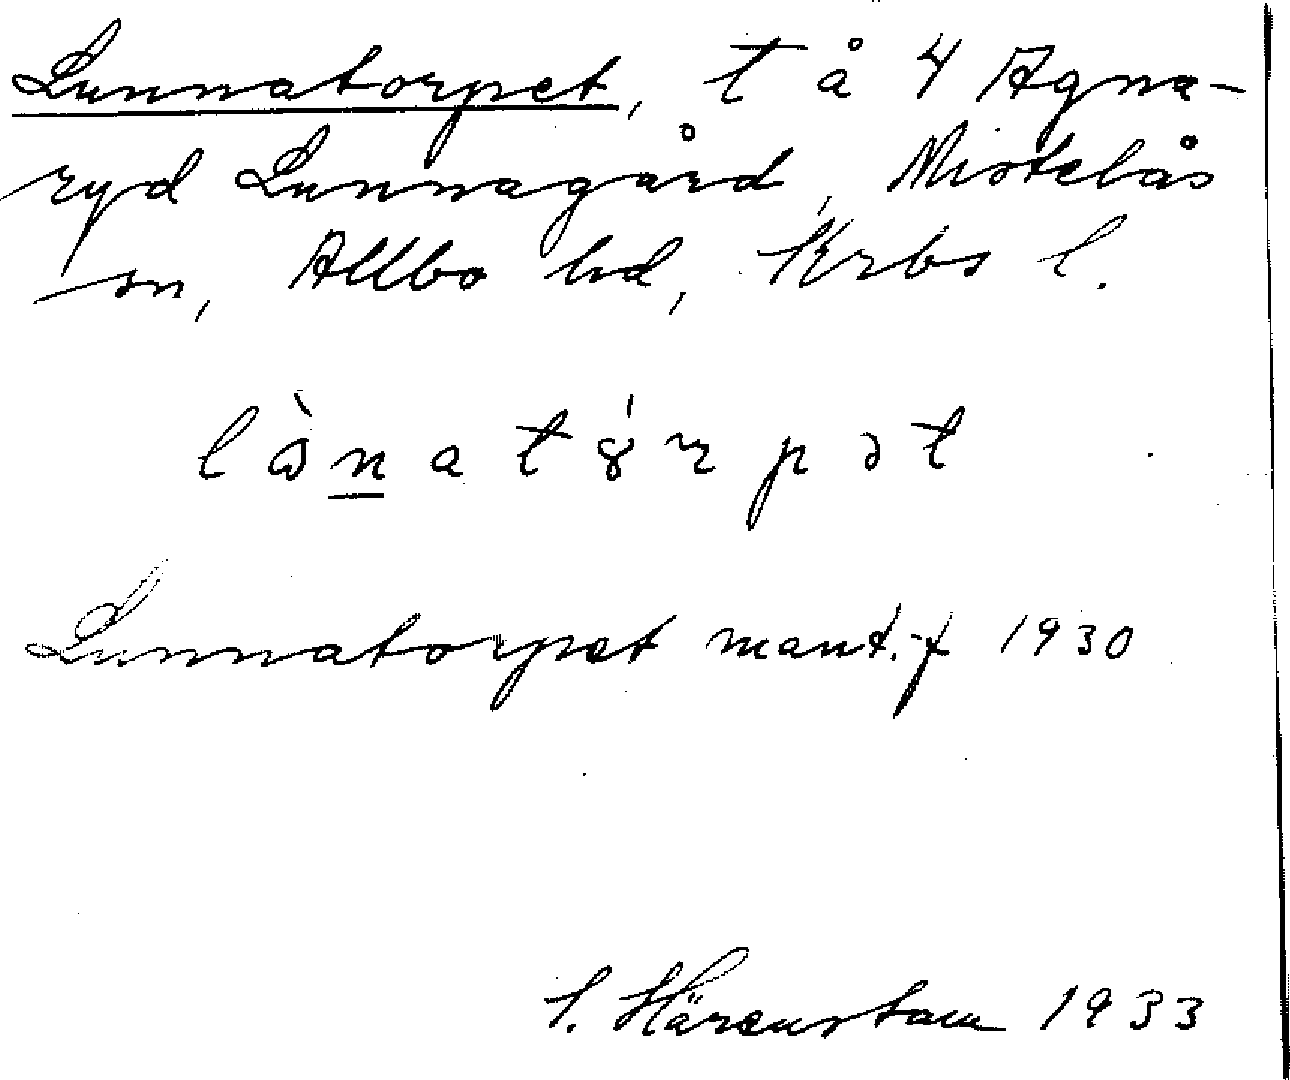 Lunnatorpet, t å 4 Agna-
ryd Lunnagård, Mistelås
sn, Allbo hd, Krbs l.
lὰnatȣ́rpət
Lunnatorpet mant.f 1930
S. Härenstam 1933